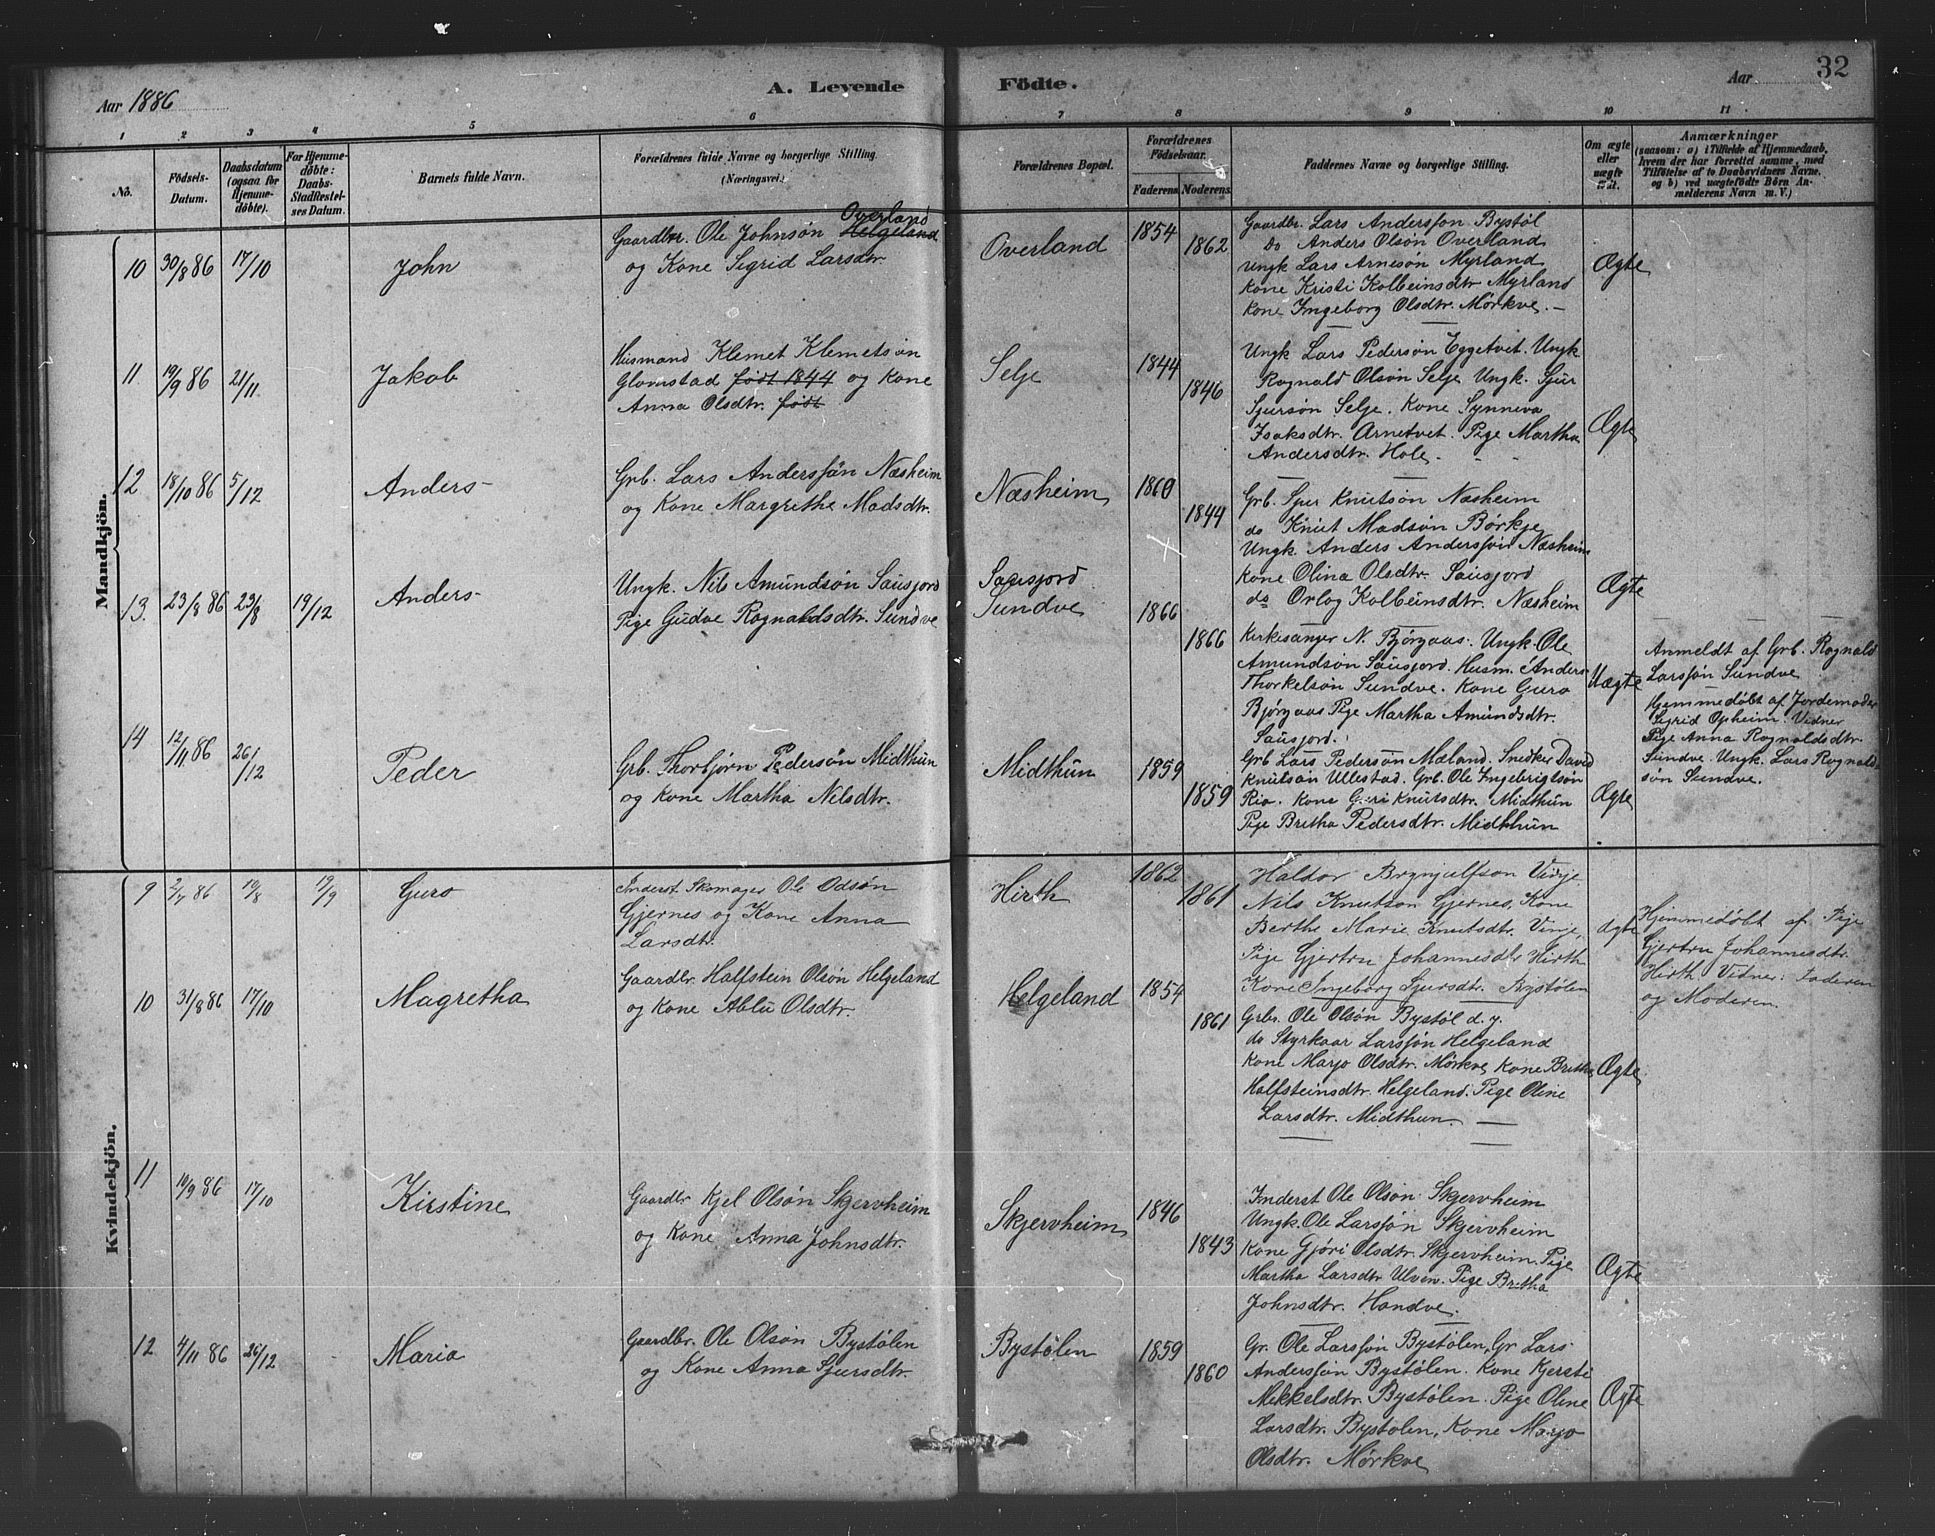 Aar 1886
A. Levende Födte.
Aar
32
1 2 3 4 5 6 7 8 9 10 11
No.
Födsels-Datum.
Daabsdatum (ogsaa for Hjemmedöbte).
For Hjemmedöbte: Daabs-Stadfæstelses Datum.
Barnets fulde Navn.
Forældrenes fulde Navne og borgerlige Stilling (Næringsvei).
Forældrenes Bopæl.
Forældrenes Födselsaar.
Faderens. Moderens.
Faddernes Navne og borgerlige Stilling.
Om ægte eller uægte födt.
Anmærkninger
(saasom: a) i Tilfælde af Hjemmedaab, hvem der har forrettet samme, med Tilföielse af to Daabsvidners Navne, og b) ved uægtefödte Börn Anmelderens Navn m. V.)
Mandkjön.
10 30/8 86 17/10 John
Overland
Gaardbr. Ole Johnsön Helgeland
og Kone Sigrid Larsdtr
Overland 1854 1862
Gaardbr. Lars Anderssøn Bystøl
Do Anders Olsøn Overland
Ungk Lars Arnesøn Myrland
Kone Kristi Kolbeinsdtr Myrland
Kone Ingeborg Olsdtr. Mørkve. -
Ægte
11 19/9 86 21/11 Jakob
Husmand Klemet Klemetsøn
Glomstad født 1844 og Kone
Anna Olsdtr. født
Selje 1844 1846
Ungk Lars Pedersøn Eggetvet. Ungk
Rognald Olsøn Selje Ungk. Sjur
Sjursøn Selje. Kone Synneva
Isaksdtr. Arnetvet. Pige Martha
Andersdtr. Hole.
Ægte
12 18/10 86 5/12 Anders
Grb. Lars Anderssøn Næsheim
og Kone Margrethe Madsdtr.
Næsheim 1860 1844
Grb. Sjur Knutsøn Næsheim
do Knut Madsøn Børkje
Ungk Anders Anderssøn Næsheim
Kone Olina Olsdtr. Sausjord
do Orlog Kolbeinsdtr. Næsheim
Ægte
13. 23/8 86 23/8 19/12 Anders
Ungk. Nils Amundsøn Sausjord
Pige Gudve Rognaldsdtr. Sundve
Sausjord
Sundve 1866 1866
Kirkesanger N. Bjørgaas. Ungk. Ole
Amundsøn Sausjord. Husm. Anders
Thorkelsøn Sundve. Kone Guro
Bjørgaas Pige Martha Amundsdtr.
Sausjord.
Uægte
Anmeldt af Grb. Rognald
Larssøn Sundve
Hjemmedøbt af Jordemoder
Sigrid Opheim. Vidner
Pige Anna Rognaldsdtr.
Sundve. Ungk. Lars Rognald-
søn Sundve.
14 12/11 86 26/12 Peder
Grb. Thorbjørn Pedersøn Midthun
og Kone Martha Nilsdtr.
Midthun 1859 1859
Grb Lars Pedersøn Mæland. Snedker David
Knutsøn Ullestad. Grb. Ole Ingebrigtsøn
Rio. Kone Geri Knutsdtr. Midthun
Pige Britha Pedersdtr. Midthun
Ægte
Kvindekjön.
9 2/7 86 10/8 19/9 Guro
Inderst Skomager Ole Odsøn
Gjernes og Kone Anna
Larsdtr.
Hirth 1862 1861
Haldor Brynjulfson Vinje
Nils Knutson Gjernes, Kone
Berthe Marie Knutsdtr. Vinje,
Pige Gjertru Johannesdtr Hirth
Kone Ingeborg Sjursdtr. Bystølen
ægte
Hjemmedøbt af Pige
Gjertru Johannesdtr.
Hirth Vidner: Faderen
og Moderen.
10 31/8 86 17/10 Magretha
Gaardbr Halfstein Olsøn Helgeland
og Kone Ablu Olsdtr.
Helgeland 1854 1861
Grbr. Ole Olsøn Bystøl d. y.
do Styrkaar Larssøn Helgeland
Kone Marjo Olsdtr. Mørkve Kone Britha
Halfsteinsdtr. Helgeland. Pige Oline
Larsdtr. Midthun.
Ægte
11 10/9 86 17/10 Kirstine
Gaardbr Kjel Olsøn Skjervheim
og Kone Anna Johnsdtr.
Skjervheim 1846 1843
Inderst Ole Olsøn Skjervheim
Ungk. Ole Larssøn Skjervheim
Kone Gjøri Olsdtr. Skjervheim. Pige
Martha Larsdtr Ulven. Pige Britha
Johnsdtr. Handve.
Ægte
12 4/11 86 26/12 Maria
Gaardbr. Ole Olsøn Bystølen
og Kone Anna Sjursdtr.
Bystølen 1859 1860
Gr. Ole Larssøn Bystølen, Gr Lars
Anderssøn Bystølen. Kone Kjersti
Mikkelsdtr. Bystølen. Pige Oline
Larsdtr. Bystølen, Kone Marjo
Olsdtr. Mørkve
Ægte